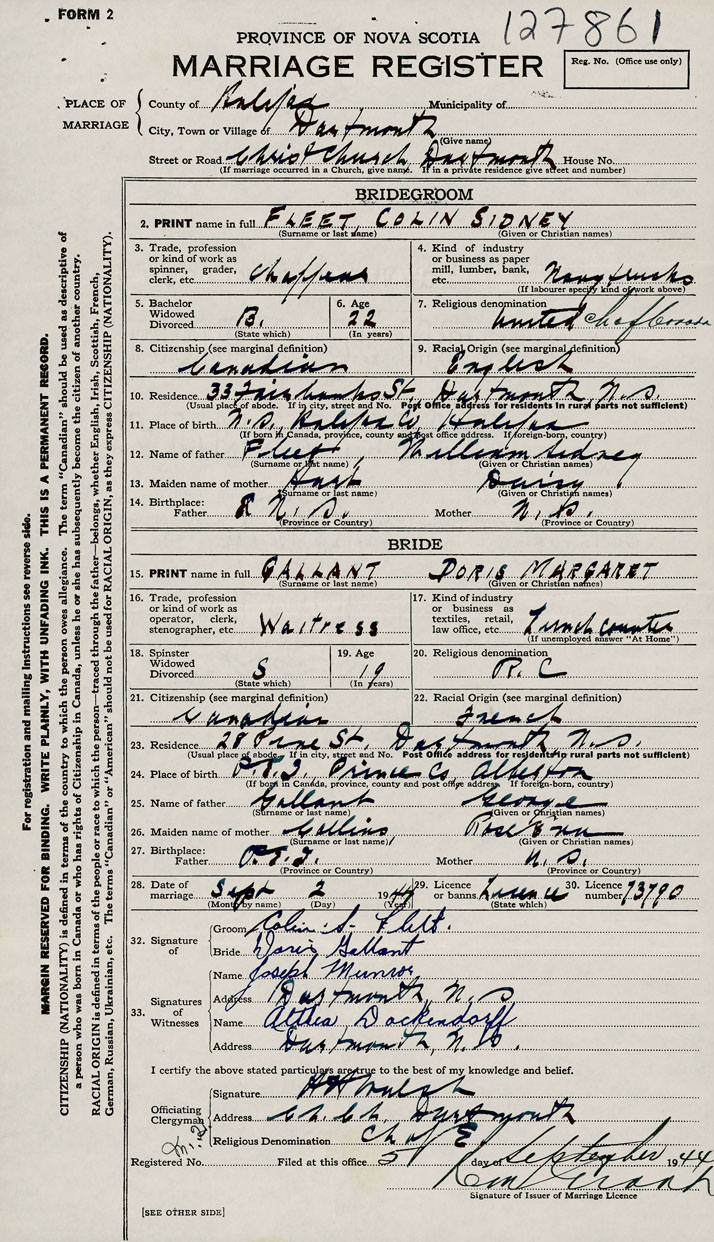 FORM 2
127861
PROVINCE OF NOVA SCOTIA
MARRIAGE REGISTER
Reg. No. (Office use only)
PLACE OF MARRIAGE
County of Halifax Municipality of
City, Town or Village of Dartmouth
(Give name)
Street or Road Christ Church, Dartmouth House No.
(If marriage occurred in a Church, give name. If in a private residence give street and number)
BRIDEGROOM
2. PRINT name in full FLEET, COLIN SIDNEY
(Surname or last name) (Given or Christian names)
3. Trade, profession or kind of work as spinner, grader, clerk, etc.
4. Kind of industry or business as paper mill, lumber, bank, etc. Navy trucks
(If labourer specify kind of work above)
5. Bachelor Widowed Divorced B.
(State which)
6. Age 22
(In years)
7. Religious denomination United Ch of Canada
8. Citizenship (see marginal definition) Canadian
9. Racial Origin (see marginal definition) English
10. Residence 33 Fairbanks St, Dartmouth N.S.
(Usual place of abode. If in city, street and No. Post Office address for residents in rural parts not sufficient)
11. Place of birth N.S. Halifax Co Halifax
(If born in Canada, province, county and post office address. If foreign-born, country)
12. Name of father Fleet William Sidney
(Surname or last name) (Given or Christian names)
13. Maiden name of mother Hart Daisy
(Surname or last name) (Given or Christian names)
14. Birthplace: Father N.S. Mother N.S.
(Province or Country) (Province or Country)
BRIDE
15. PRINT name in full GALLANT DORIS MARGARET
(Surname or last name) (Given or Christian names)
16. Trade, profession or kind of work as operator, clerk, stenographer, etc. Waitress
17. Kind of industry or business as textiles, retail, law office, etc. Lunch Counter
(If unemployed answer "At Home")
18. Spinster Widowed Divorced S
(State which)
19. Age 19
(In years)
20. Religious denomination R.C
21. Citizenship (see marginal definition) Canadian
22. Racial Origin (see marginal definition) French
23. Residence 28 Pine St, Dartmouth N.S.
(Usual place of abode. If in city, street and No. Post Office address for residents in rural parts not sufficient)
24. Place of birth P.E.I. Prince Co,
(If born in Canada, province, county and post office address. If foreign-born, country)
25. Name of father Gallant George
(Surname or last name) (Given or Christian names)
26. Maiden name of mother Collins, Rose
(Surname or last name) (Given or Christian names)
27. Birthplace: Father P.E.I. Mother N.S.
(Province or Country) (Province or Country)
28. Date of marriage Sept 2 1944
(Month by name) (Day) (Year)
29. Licence or banns Licence
(State which)
30. Licence number 73790
32. Signature of
Groom Colin S. Fleet.
Bride Doris Gallant
33. Signatures of Witnesses
Name Joseph Munroe
Address Dartmouth, N.S
Name Althea Dockendorff
Address Dartmouth, N.S.
I certify the above stated particulars are true to the best of my knowledge and belief.
Officiating Clergyman
Signature Walsh
Address Ch. Ch. Dartmouth
Religious Denomination Ch of E
Registered No. Filed at this office 5 day of September 1944
Signature of Issuer of Marriage Licence
[SEE OTHER SIDE]
For registration and mailing instructions see reverse side.
MARGIN RESERVED FOR BINDING. WRITE PLAINLY, WITH UNFADING INK. THIS IS A PERMANENT RECORD.
CITIZENSHIP (NATIONALITY) is defined in terms of the country to which the person owes allegiance. The term "Canadian" should be used as descriptive of
a person who was born in Canada or who has rights of Citizenship in Canada, unless he or she has subsequently become the citizen of another country.
RACIAL ORIGIN is defined in terms of the people or race to which the person—traced through the father—belongs, whether English, Irish, Scottish, French,
German, Russian, Ukrainian, etc. The terms "Canadian" or "American" should not be used for RACIAL ORIGIN, as they express CITIZENSHIP (NATIONALITY).